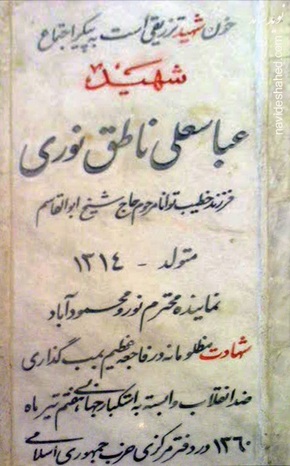 خون شهید تزریقی است به پیکر اجتماع
شهید
عباسعلی ناطق نوری
فرزند خطیب توانا مرحوم حاج شیخ ابوالقاسم
متولد - ۱۳۱۴
نماینده محترم نور و محمودآباد
شهادت مظلومانه در فاجعه عظیم بمب گذاری
ضد انقلاب وابسته به استکبار جهانی هفتم تیر ماه
۱۳۶۰ در دفتر مرکزی حزب جمهوری اسلامی
navideshahed.com